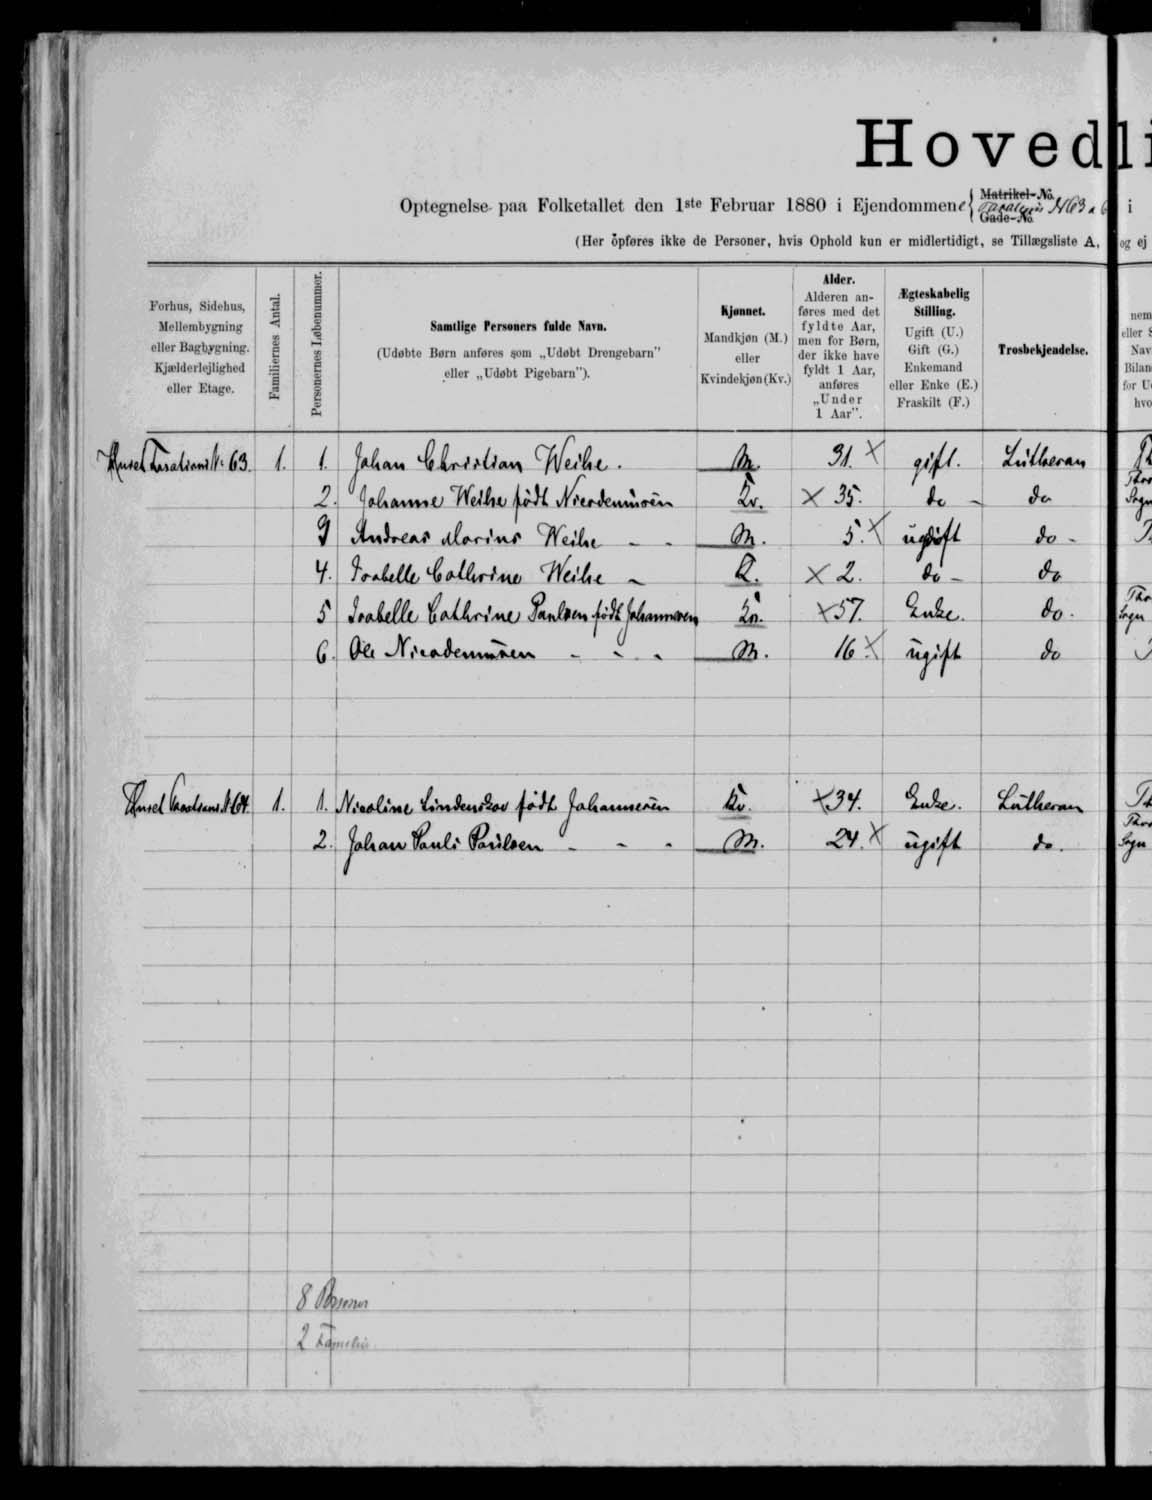 Hovedli
Optegnelse paa Folketallet den 1ste Februar 1880 i Ejendommene { Matrikel-No. Taxations No 63 a Gade-No. i
(Her opføres ikke de Personer, hvis Ophold kun er midlertidigt, se Tillægsliste A, og ej
Forhus, Sidehus, Mellembygning eller Bagbygning. Kjælderlejlighed eller Etage.
Familiernes Antal.
Personernes Løbenummer.
Samtlige Personers fulde Navn.
(Udøbte Børn anføres som „Udøbt Drengebarn"
eller „Udøbt Pigebarn").
Kjønnet.
Mandkjøn (M.)
eller
Kvindekjøn (Kv.)
Alder.
Alderen an-
føres med det
fyldte Aar,
men for Børn,
der ikke have
fyldt 1 Aar,
anføres
„Under
1 Aar".
Ægteskabelig
Stilling.
Ugift (U.)
Gift (G.)
Enkemand
eller Enke (E.)
Fraskilt (F.)
Trosbekjendelse.
nem
eller S
Nav
Bilan
for U
hvo
Huset Taxations No 63. 1. 1. Johan Christian Weihe. M. 31. gift. Lutheran Th
2. Johanne Weihe født Nicodemusen Kv. 35. do - do Thor Sogn
3 Andreas Marius Weihe - - M. 5. ugift do - T
4. Isabelle Cathrine Weihe - K. 2. do - do
5 Isabelle Cathrine Paulsen født Johannesen Kv. 57. Enke. do. Thor Sogn
6. Ole Nicodemusen - - - M. 16. ugift do
Huset Taxations No 64. 1. 1. Nicoline Lindenskov født Johannesen Kv. 34. Enke. Lutheran Th
2. Johan Pauli Paulsen - - - M. 24. ugift do. Thor Sogn
8 Personer
2 Familier